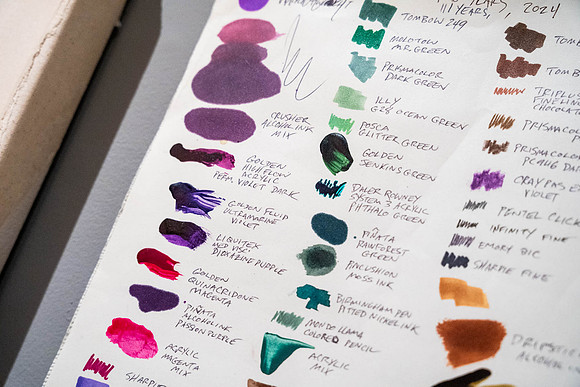 111 YEARS, 2024
CRUSHER
ALCOHOL INK
MIX
GOLDEN
HIGH FLOW
ACRYLIC
PERM. VIOLET DARK
GOLDEN FLUID
ULTRAMARINE
VIOLET
LIQUITEX
MED VISC
DIOXAZINE PURPLE
GOLDEN
QUINACRIDONE
MAGENTA
• PIÑATA
ALCOHOL INK
PASSION PURPLE
ACRYLIC
MAGENTA
MIX
SHARPIE
TOMBOW 249
MOLOTOW
MR. GREEN
PRISMACOLOR
DARK GREEN
ILLY
G28 OCEAN GREEN
POSCA
GLITTER GREEN
GOLDEN
JENKINS GREEN
DALER ROWNEY
SYSTEM 3 ACRYLIC
PHTHALO GREEN
• PIÑATA
RAINFOREST
GREEN
MOSS INK
BIRMINGHAM PEN
PITTED NICKEL INK
MONDO LLAMA
COLORED PENCIL
ACRYLIC
MIX
TOMB
TOMB
TRIPLUS
FINELINE
CHOCOLAT
PRISMACO
PRISMACOLO
PC 946 DAR
CRAY PAS E
VIOLET
PENTEL CLICK
INFINITY FINE
EMORY BIC
SHARPIE FINE
DRIPSTIC
ALCOHOL